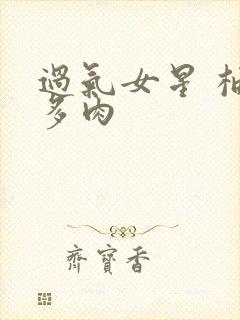 過氣女星 柚
多肉
齊寶香